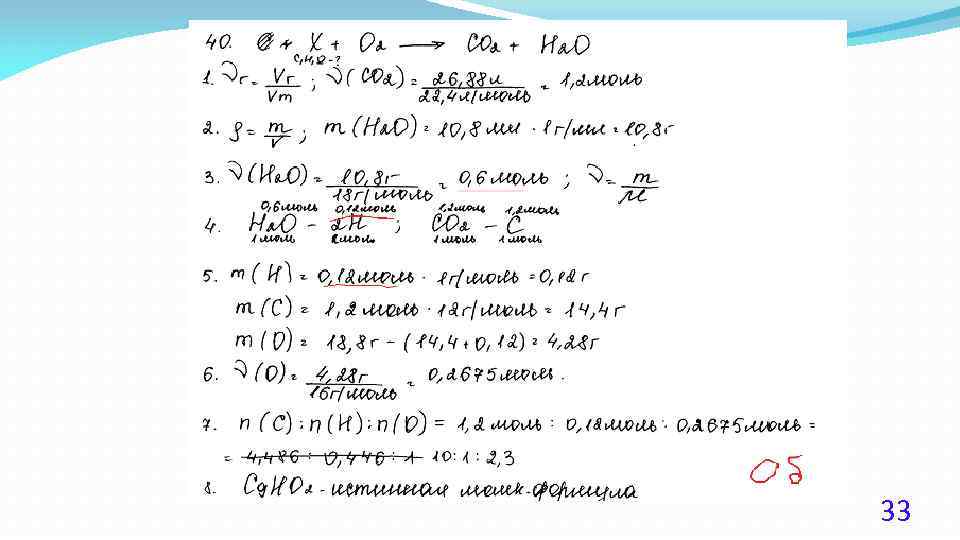 40. X + O2 → CO2 + H2O
C, H, O - ?
1. νг = Vг / Vm ; ν(CO2) = 26,88л / 22,4л/моль = 1,2моль
2. ρ = m / v ; m(H2O) = 10,8 мл · 1г/мл = 10,8г
3. ν(H2O) = 10,8г / 18г/моль = 0,6моль ; ν = m / M
0,6моль 0,12моль 1,2моль 1,2моль
4. H2O - 2H ; CO2 - C
1моль 2моль 1моль 1моль
5. m(H) = 0,12моль · 1г/моль = 0,12г
m(C) = 1,2моль · 12г/моль = 14,4г
m(O) = 18,8г - (14,4 + 0,12) = 4,28г
6. ν(O) = 4,28г / 16г/моль = 0,2675моль.
7. n(C) : n(H) : n(O) = 1,2моль : 0,12моль : 0,2675моль =
= 4,486 : 0,446 : 1 10 : 1 : 2,3
8. - истинная молек-формула
Об
33